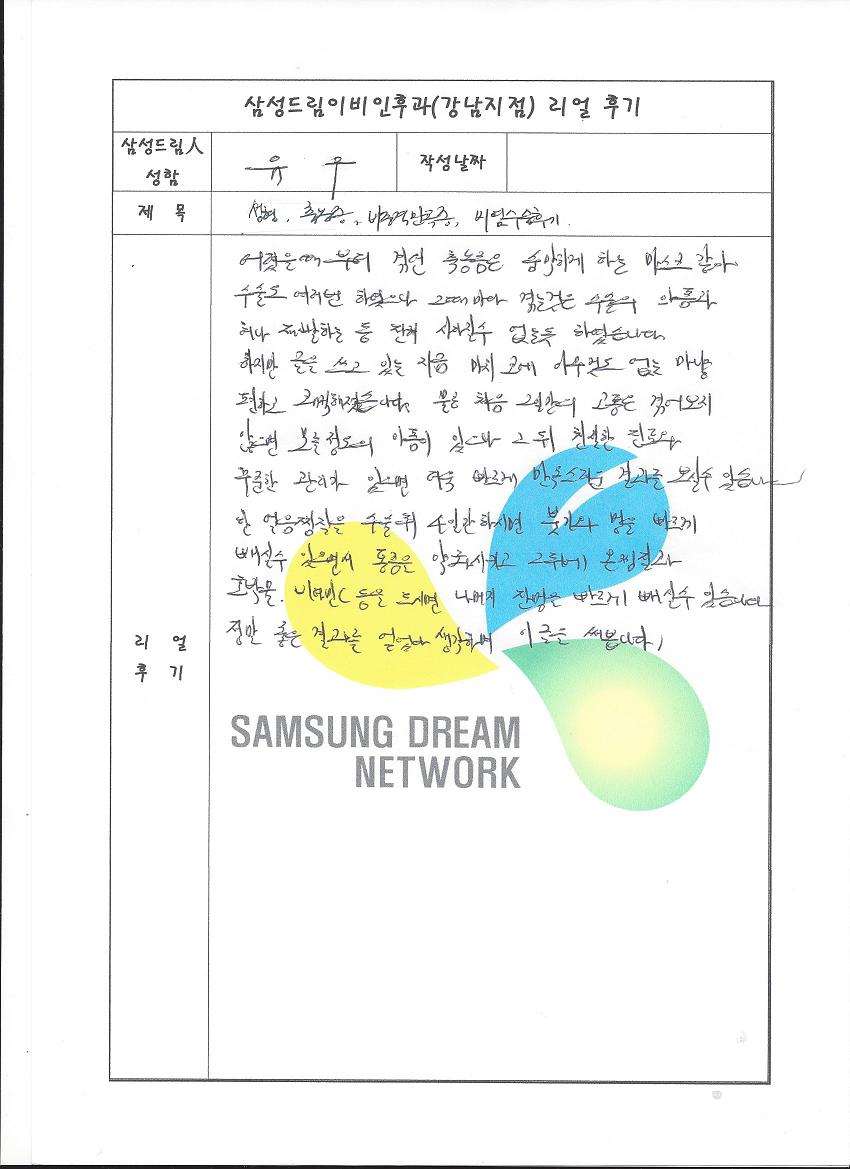 삼성드림이비인후과(강남지점) 리얼 후기
삼성드림人
성함
유 우
작성날짜
제 목
성형, 축농증, 비중격만곡증, 비염수술후기.
어렸을때 부터 겪던 축농증은 숨막히게 하는 마스크 같아
수술도 여러번 하였으나 그때마다 겪는것은 수술의 아픔과
재발하는 등 전혀 사라질수 없는듯 하였습니다.
하지만 글을 쓰고 있는 지금 마치 코에 아무것도 없는 마냥
편하고 쾌적해졌습니다. 물론 처음 2일간의 고통은 겪어보지
않으면 모를정도의 아픔이 있으나 그 뒤 친절한 진료와
꾸준한 관리가 있으면 더욱 빠르게 만족스러운 결과를 보실수 있습니다
한 얼음찜질을 수술뒤 4일간하시면 붓기와 멍을 빠르게
빼실수 있으면서 통증은 약화시키고 그뒤에 온찜질과
호박물. 비타민C 등을 드시면 나머지 잔멍은 빠르게 빼실수 있습니다
정말 좋은 결과를 얻었다 생각하며 이글을 써봅니다,
리 얼
후 기
SAMSUNG DREAM
NETWORK